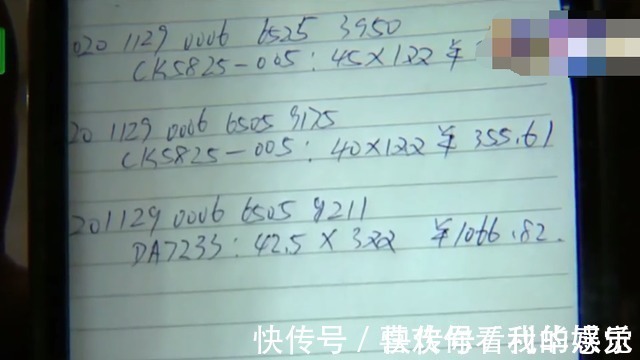 020 1129 0006 6525 3950
CK5825-005: 45X122 ¥
20 1129 0006 6505 9175
CK5825-005: 40X122 ¥ 355.61
201129 0006 6505 9211
DA7233: 42.5 X 322 ¥1066.82.
快传号 /